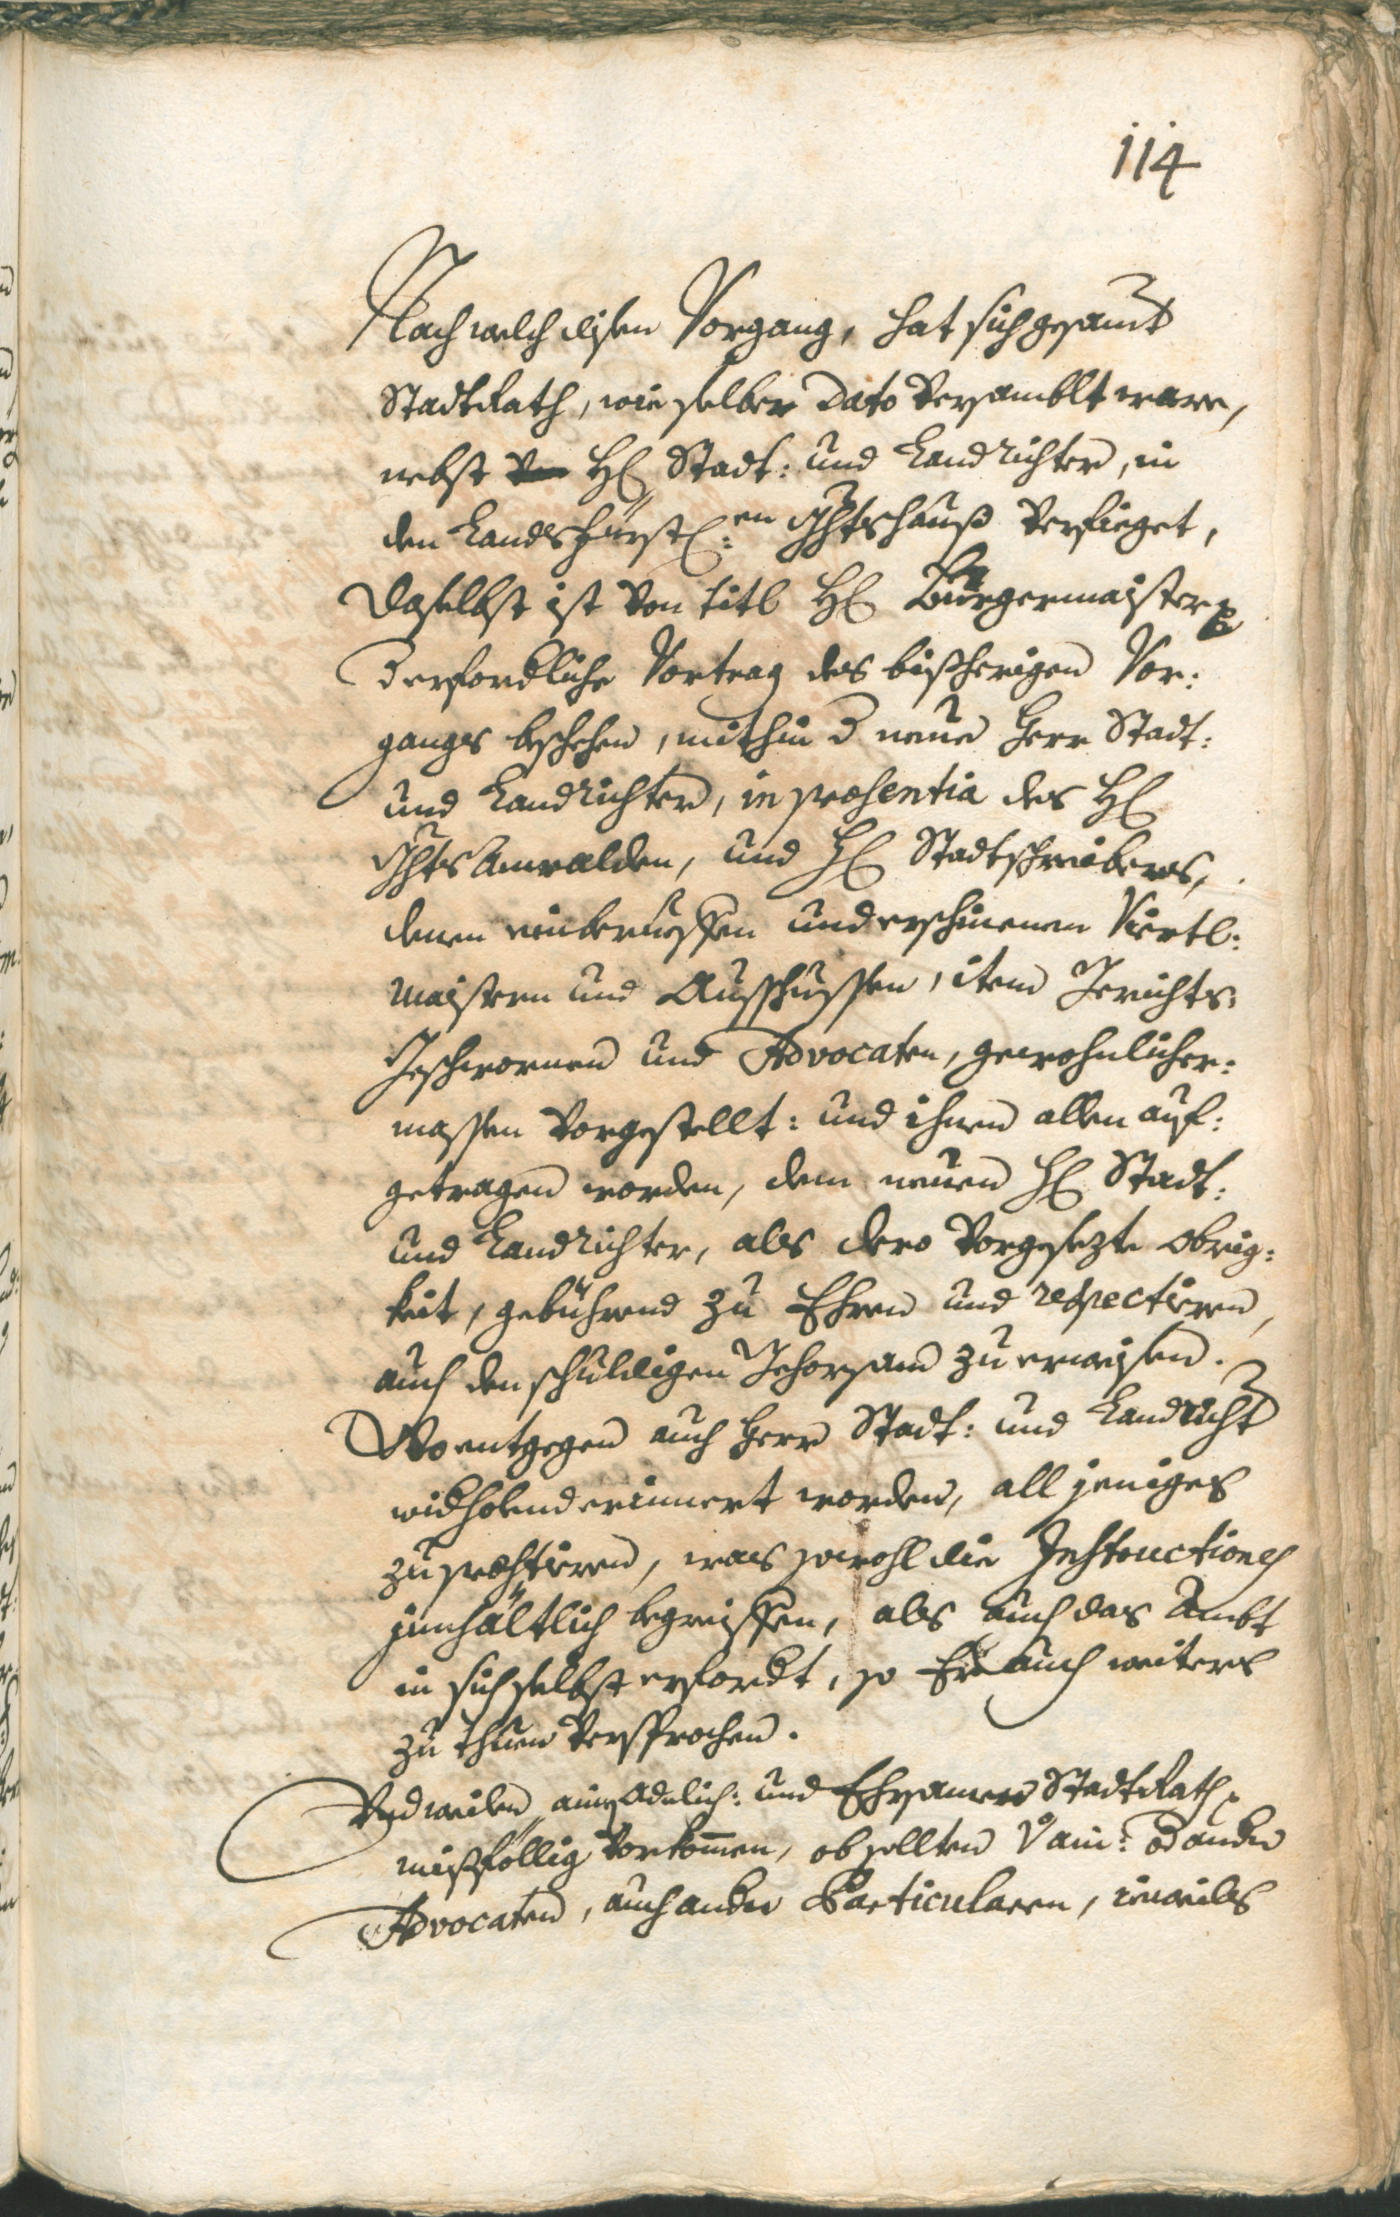 114
Nach welch disen Vorgang, hat sich gesamt
StadtRath, wie selber Dato Versamblt ware,
nebst H: Stadt: und Landrichter, in
den Landsfürstl:en Ghtshauß Verfieget,
Daselbst ist Von titl H: Burgermaister
D erfordliche Vortrag des bißherigen Vor:
ganges beschehen, mithin d neue Herr Stadt:
und Landrichter, in præsentia des H:
GhtsAnwalden, und H: Stadtschreibers,
denen einberueffen und erschinenen Viertl:
maistern und Ausschussen, item Gerichts:
Geschwornen und Advocaten, gewohnlicher:
massen Vorgestellt: und ihnen allen auf:
getragen worden, dem neuen H: Stadt:
und Landrichter, als dero Vorgesezte obrig:
keit, gebührend zu Ehren und respectiren,
auch den schuldigen Gehorsam zu erweisen.
Wo entgegen auch Herr Stadt: und Landricht
widholend erinnert worden, all jeniges
zu præstiren, was sowohl die Instructiones
jnnhältlich begreiffen, als auch das Ambt
in sich selbst erfordt, so Er auch weiters
zu thuen Versprochen.
Und weilen ain Adelich: und Ehrsamen StadtRath
mißföllig Vorkom̄en, ob sollten ain: od ander
Advocaten, auch ander Particularn, iewails